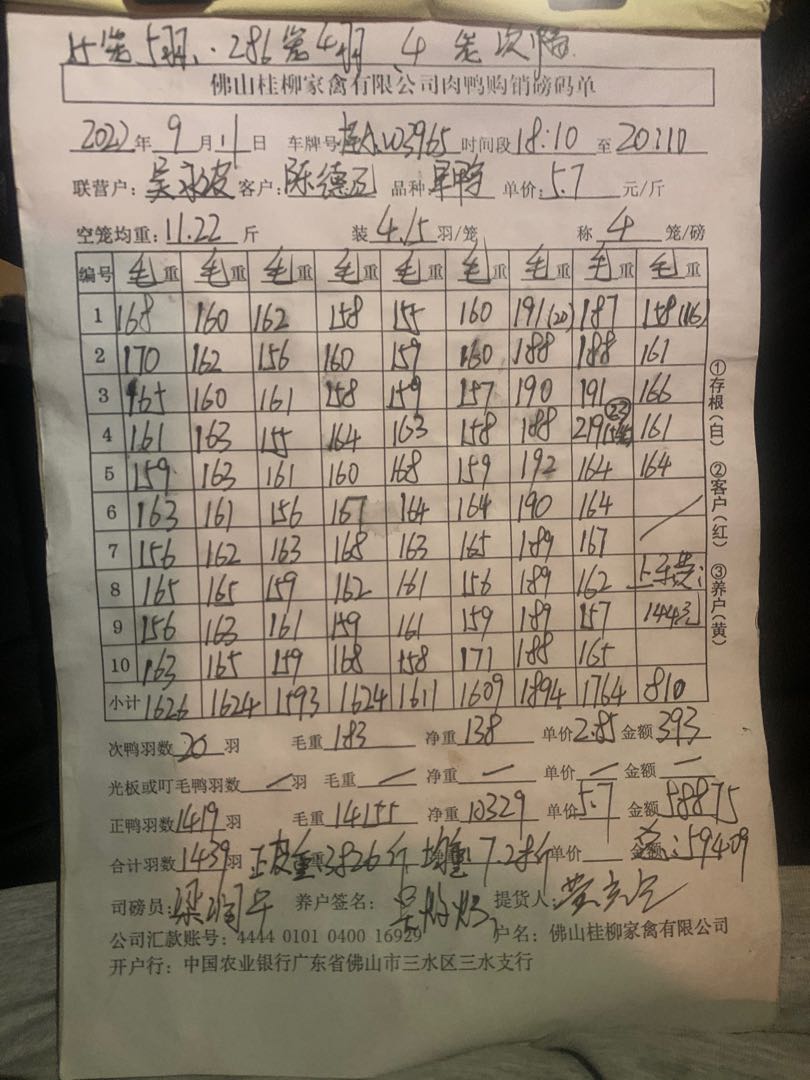 笼5羽、286笼4羽、4笼次鸭
佛山桂柳家禽有限公司肉鸭购销磅码单
2022年9月11日 车牌号 W3965 时间段18:10至20:10
联营户: 吴 客户: 陈德 品种 单价:5.7元/斤
空笼均重:11.22斤 装4.15羽/笼 称4笼/磅
编号 毛重 毛重 毛重 毛重 毛重 毛重 毛重 毛重 毛重
1 168 160 162 158 155 160 191(20) 187 158(16)
2 170 162 156 160 159 160 188 188 161
3 165 160 161 158 159 157 190 191 166
4 161 163 155 164 163 158 188 219 (23) 161
5 159 163 161 160 168 159 192 164 164
6 163 161 156 167 164 164 190 164
7 156 162 163 168 163 165 189 167
8 165 165 159 162 161 156 189 162 上车费:
9 156 163 161 159 161 159 189 157 144元
10 163 165 159 168 158 171 188 165
小计 1626 1624 1593 1624 1611 1609 1894 1764 810
次鸭羽数20羽 毛重183 净重138 单价2.85 金额393
光板或叮毛鸭羽数 / 羽 毛重 / 净重 / 单价 / 金额 /
正鸭羽数1419羽 毛重14155 净重10329 单价5.7 金额58875
合计羽数1439羽 正皮重:3826斤 均重:7.28斤 单价 金额:59409
司磅员: 养户签名: 提货人:
公司汇款账号: 4444 0101 0400 16929 户名: 佛山桂柳家禽有限公司
开户行: 中国农业银行广东省佛山市三水区三水支行
①存根(白) ②客户(红) ③养户(黄)